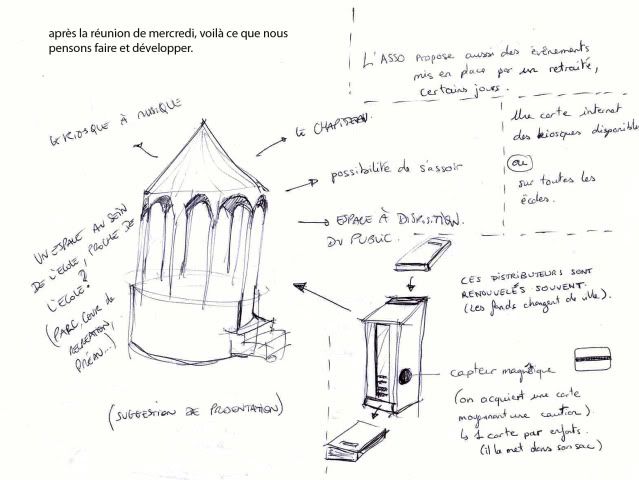 après la réunion de mercredi, voilà ce que nous
pensons faire et développer.
L'ASSO propose aussi des évènements
mis en place par un retraité,
certains jours.
Une carte internet
des kiosques disponible
ou
sur toutes les
écoles.
LE KIOSQUE À MUSIQUE
LE CHAPITEAU.
possibilité de s'assoir
ESPACE À DISPOSITION
DU PUBLIC.
UN ESPACE AU SEIN
DE L'ECOLE, PROCHE DE
L'ECOLE?
(PARC, COUR de
RECREATION,
PREAU...)
(SUGGESTION DE PRESENTATION)
CES DISTRIBUTEURS SONT
RENOUVELÉS SOUVENT.
(Les fonds changent de ville).
capteur magnétique
(on acquiert une carte
moyennant une caution)
↳ 1 carte par enfants.
(il la met dans son sac)